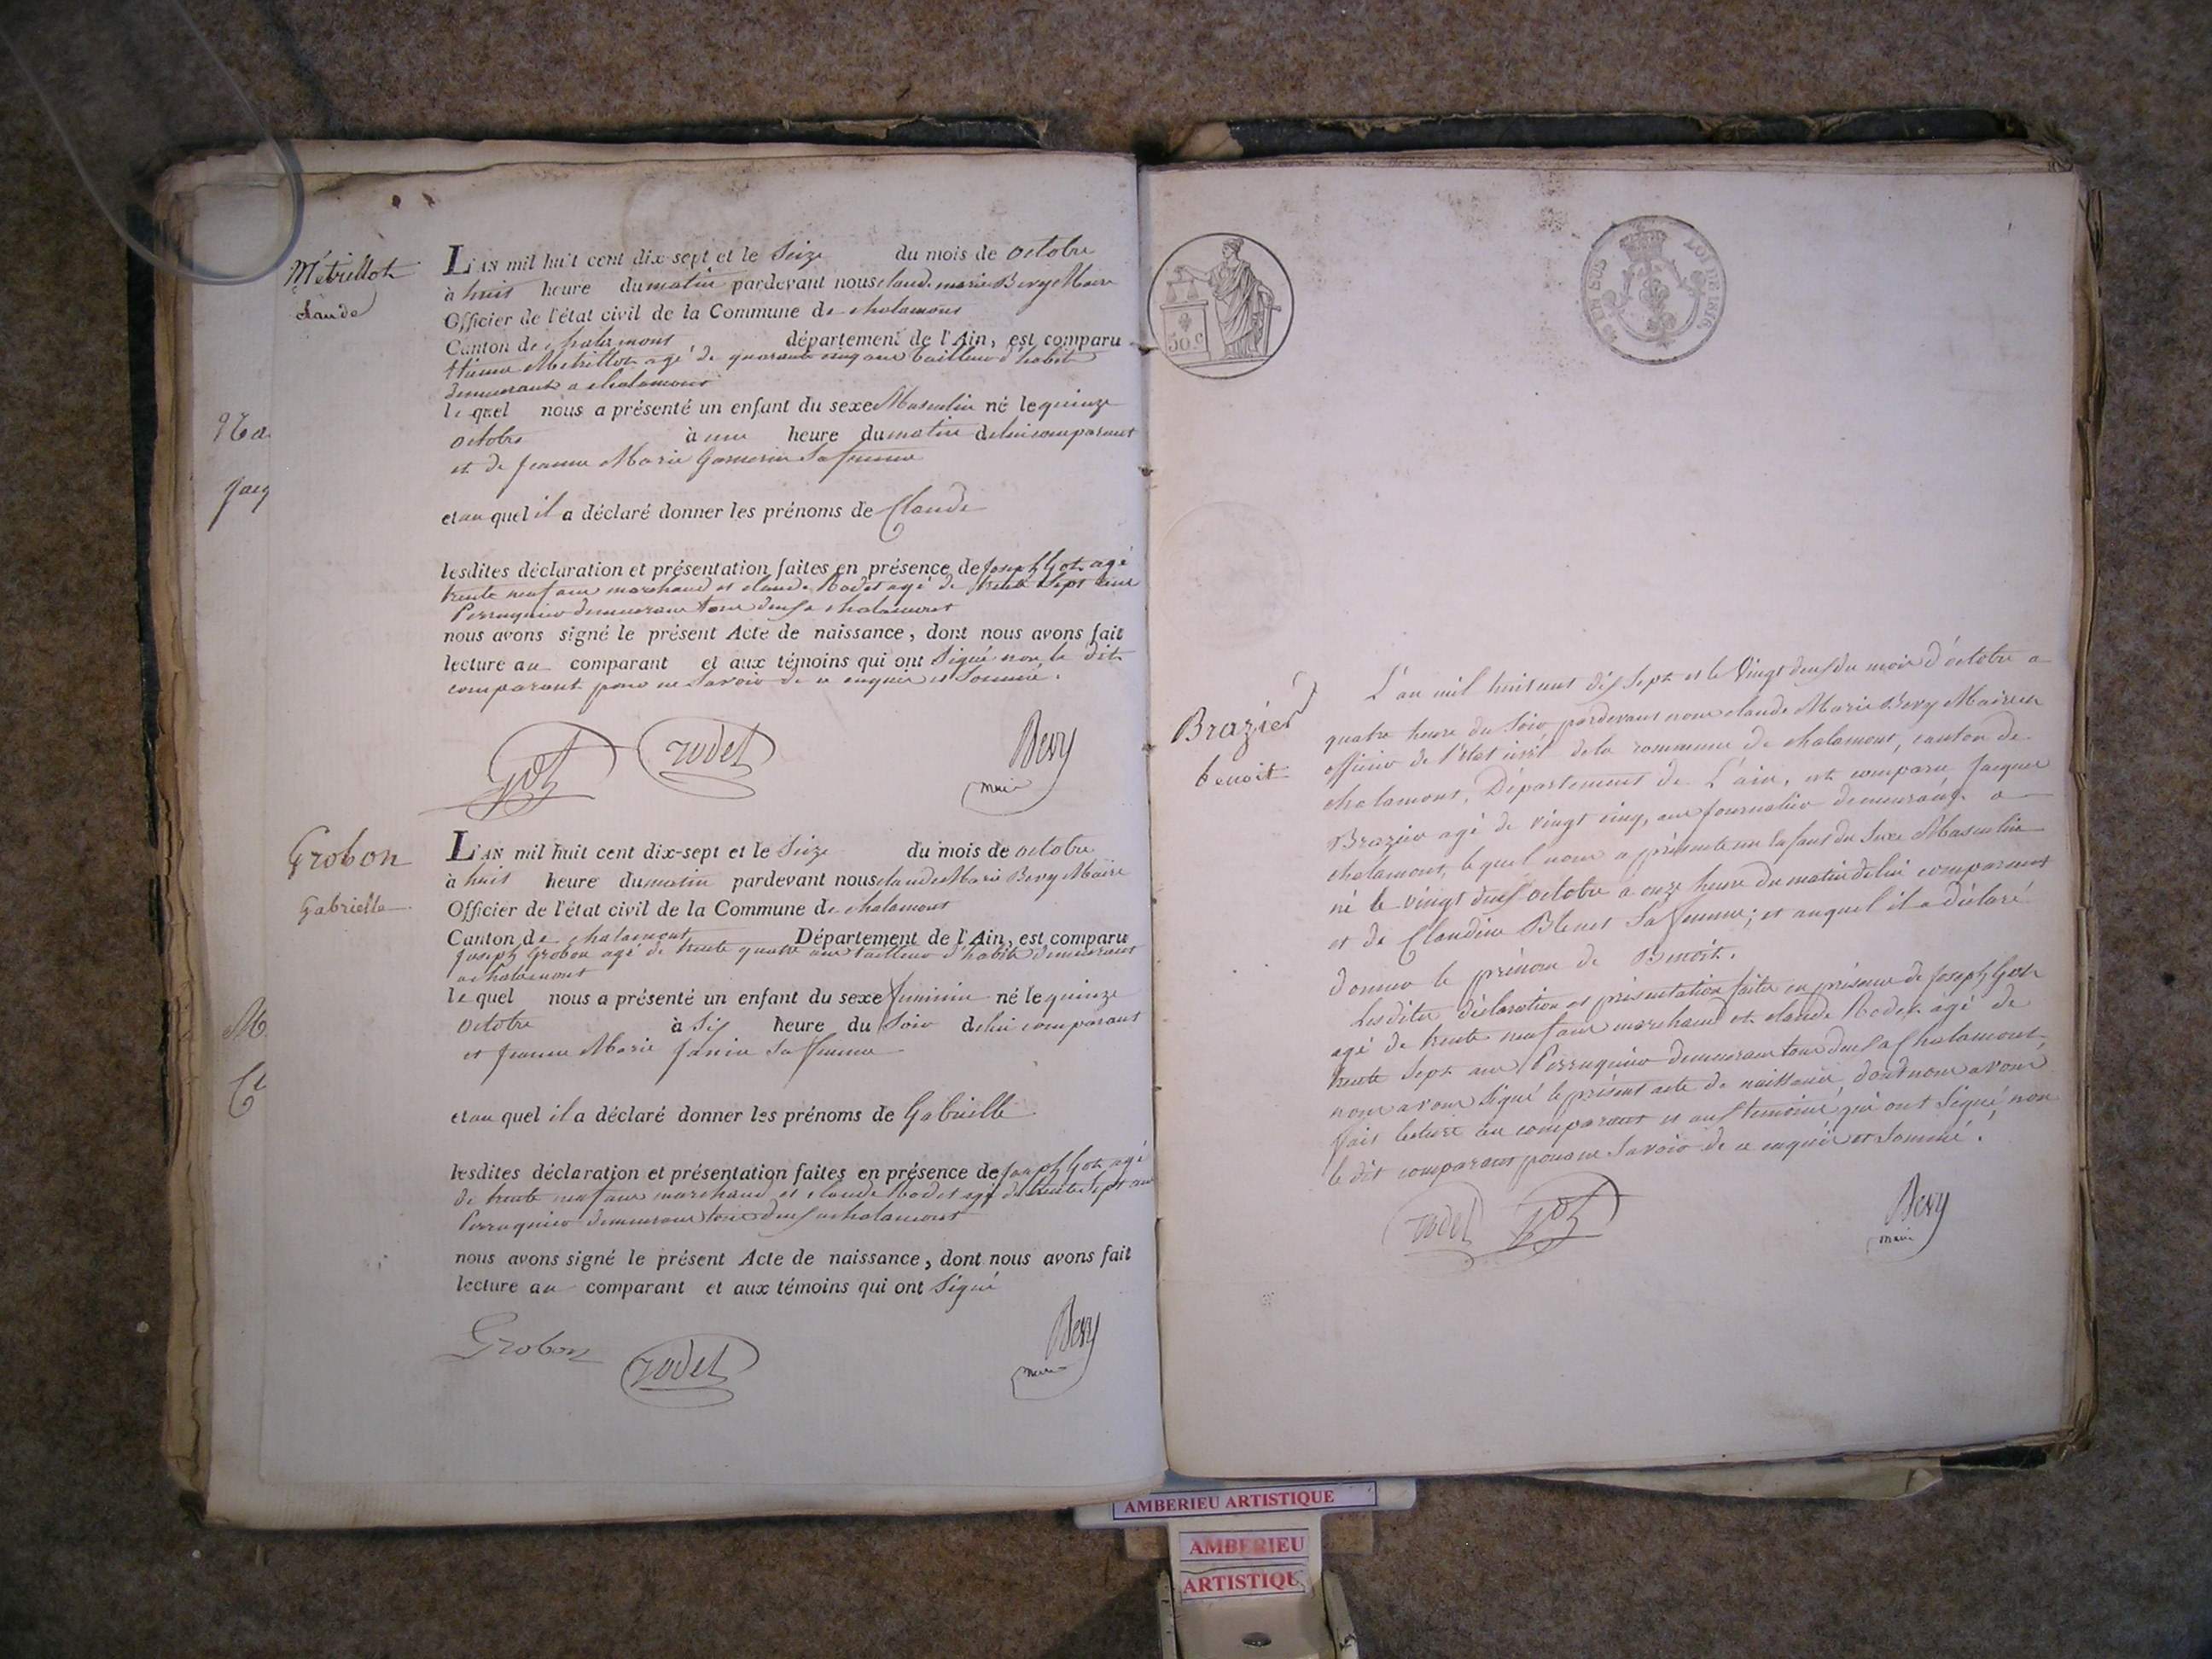 Métrillot
Claude
L'AN mil huit cent dix-sept et le Seize du mois de octobre
à huit heure du matin pardevant nous claude marie Bevy Maire
Officier de l'état civil de la Commune de chalamont
Canton de chalamont département de l'Ain, est comparu
Métrillot agé de quarante cinq ans tailleur d'habit
demeurant a chalamont
le quel nous a présenté un enfant du sexe Masculin né le quinze
octobre à une heure du matin de lui comparant
et de Jeanne Marie Garnerin Sa femme
et au quel il a déclaré donner les prénoms de Claude
lesdites déclaration et présentation faites en présence de Joseph Got agé
trente neuf ans marchand et claude Rodet agé de trente Sept ans
Perruquier demeurant tous deux a chalamont
nous avons signé le présent Acte de naissance, dont nous avons fait
lecture au comparant et aux témoins qui ont Signé non le dit
comparant pour ne Savoir de ce enquis et Sommé.
Got rodet Bevy
maire
Grobon
Gabrielle
L'AN mil huit cent dix-sept et le Seize du mois de octobre
à huit heure du matin pardevant nous claude Marie Bevy Maire
Officier de l'état civil de la Commune de chalamont
Canton de chalamont Département de l'Ain, est comparu
Joseph Grobon agé de trente quatre ans tailleur d'habit demeurant
a chalamont
le quel nous a présenté un enfant du sexe feminin né le quinze
octobre à Six heure du Soir de lui comparant
et Jeanne Marie Janin Sa femme
et au quel il a déclaré donner les prénoms de Gabrielle
lesdites déclaration et présentation faites en présence de Joseph Got agé
de trente neuf ans marchand et claude Rodet agé de trente Sept ans
Perruquier demeurant tous deux a chalamont
nous avons signé le présent Acte de naissance, dont nous avons fait
lecture au comparant et aux témoins qui ont Signé
Grobon rodet Bevy
maire
50.c
LOI DE 1816
Brazier
benoit
L'an mil huit cent dix Sept et le Vingt deux du mois d'octobre a
quatre heure du Soir pardevant nous claude Marie Bevy Maire et
officier de l'état civil de la commune de chalamont, canton de
chalamont, Département de L'ain, est comparu Jacques
Brazier agé de vingt cinq, ans Journalier demeurant a
chalamont, le quel nous a présenté un Enfant du Sexe Masculin
né le vingt deux octobre a onze heure du matin de lui comparant
et de Claudine Blenet Sa femme; et auquel il a déclaré
donner le prénom de Benoit.
Les dites déclaration et présentation faites en présence de Joseph Got
agé de trente neuf ans marchand et claude Rodet agé de
trente Sept ans Perruquier demeurant tous deux a Chalamont
nous avons Signé le présent acte de naissance, dont nous avons
fait lecture au comparant et aux temoins qui ont Signé, non
le dit comparant pour ne Savoir de ce enquis et Sommé.
rodet Got Bevy
maire
AMBERIEU ARTISTIQUE
AMBERIEU
ARTISTIQUE